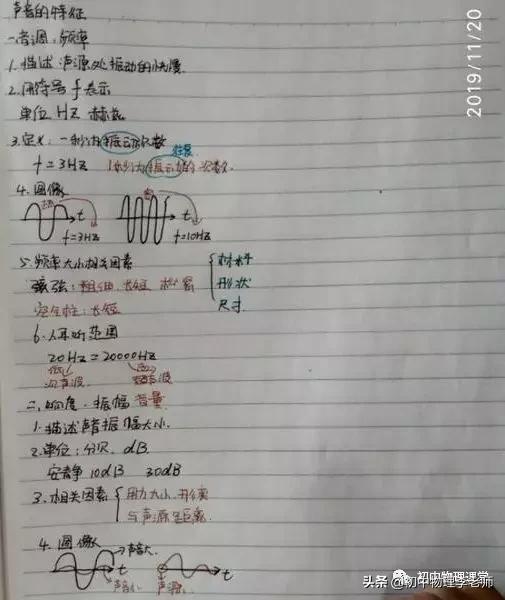 声音的特征
一音调:频率
1.描述声源处振动的快慢
2.用符号f表示
单位 HZ 赫兹
3.定义:一秒内振动次数
往复
f=3HZ 1秒内振动的次数
4.图像
t t
f=3HZ f=10HZ
5.频率大小相关因素
弦:粗细、长短、松紧
空气柱:长短
材料
形状
尺寸
6.人耳听范围
20HZ=20000HZ
次声波 超声波
二、响度、振幅 音量
1.描述声音振幅大小
2.单位:分贝 dB
安静 10dB 30dB
3.相关因素 用力大小、形状
与声源距离
4.图像
声音大
t
声音小
声源
t
2019/11/20
初中物理课堂
头条@初中物理学老师